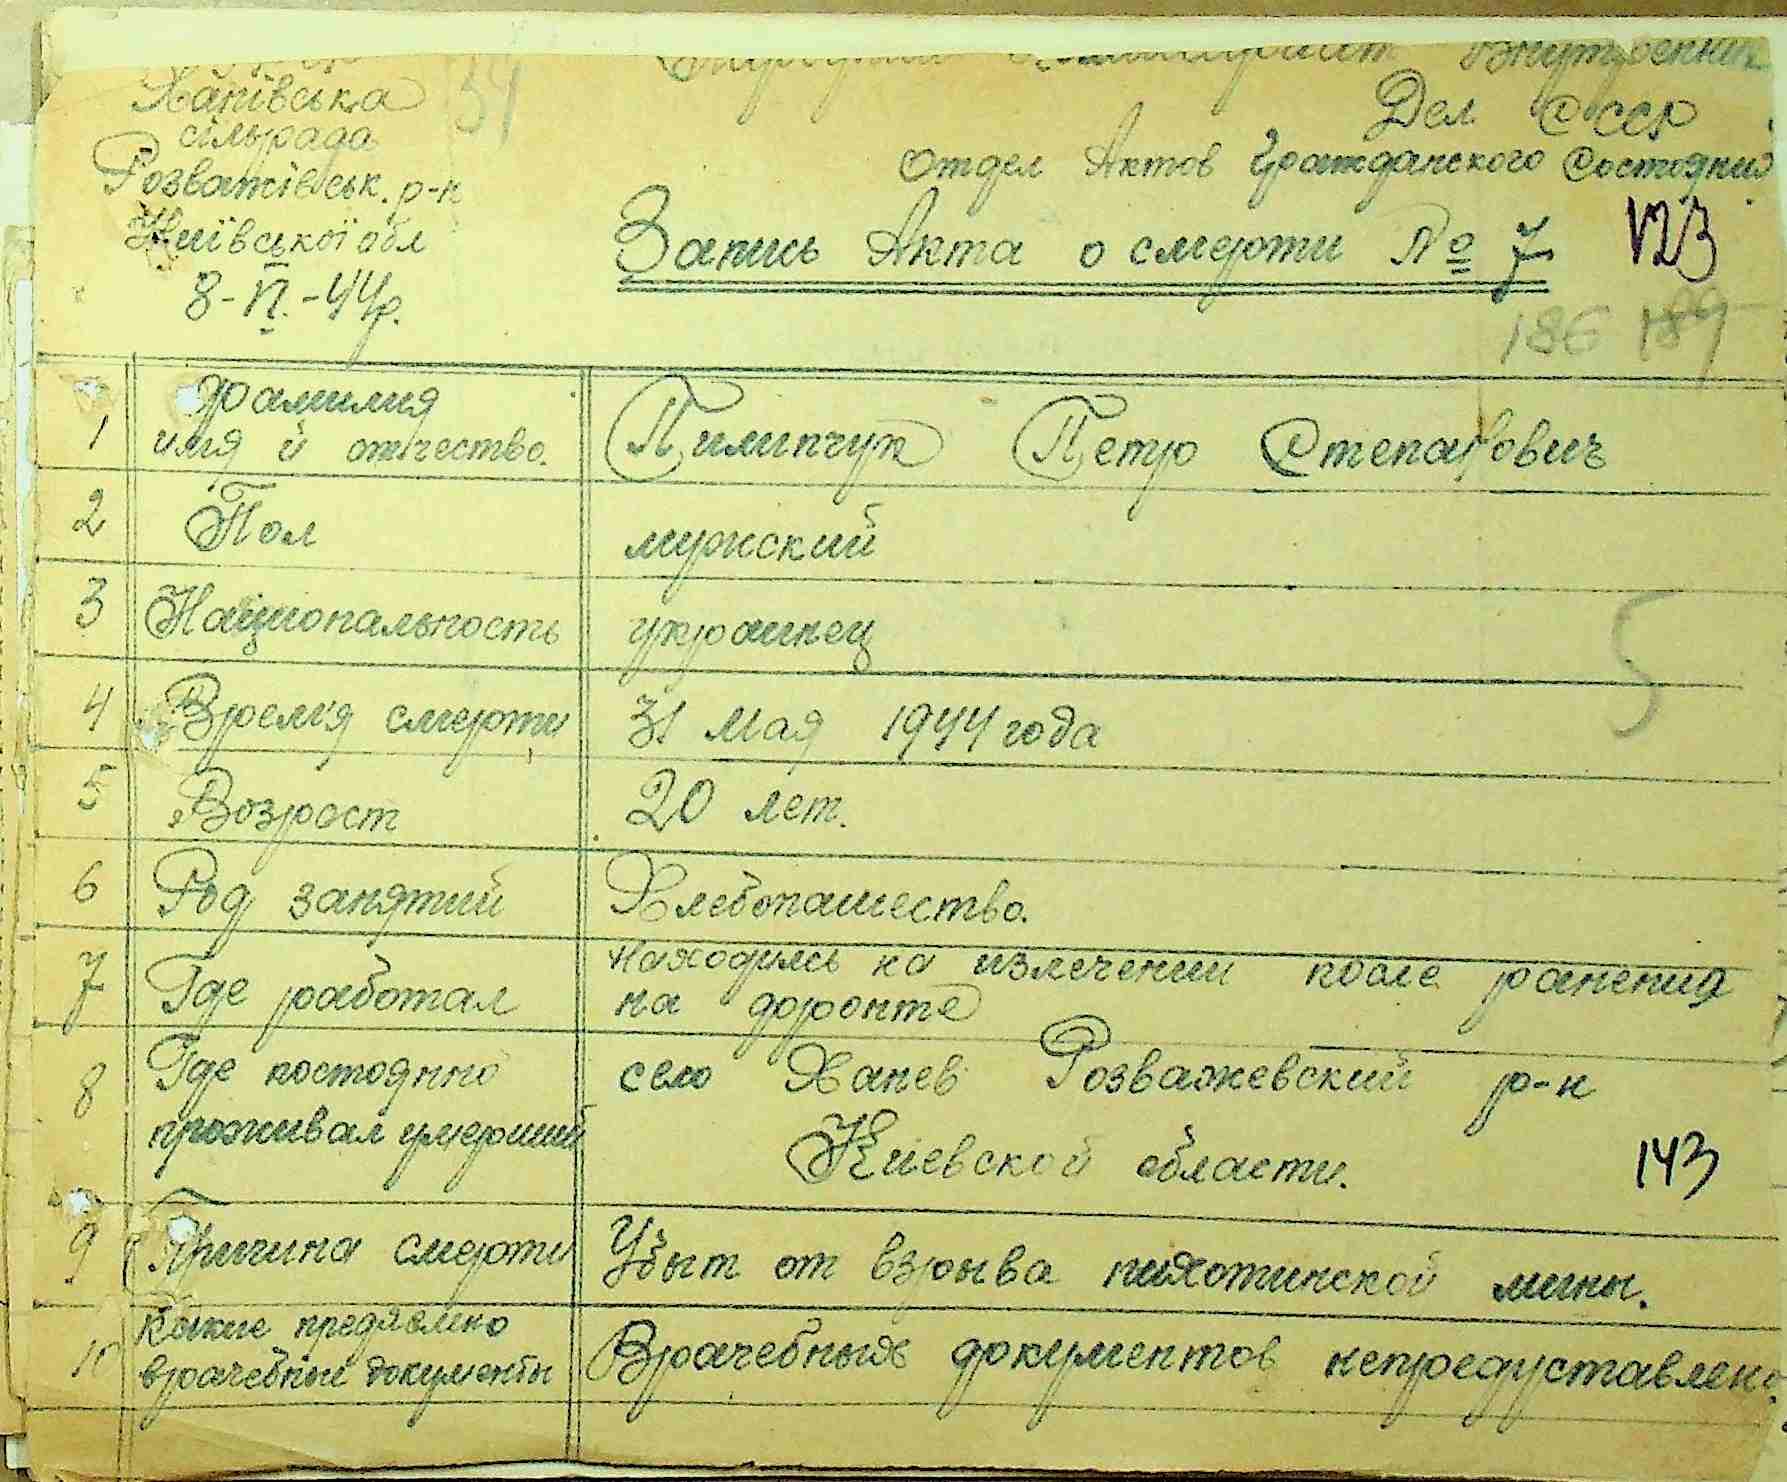 Ханівська
сільрада
Розважівськ. р-н
Київської обл
8-VI.-44р.
34
Народный Комиссариат Внутренних
Дел СССР
Отдел Актов Гражданского Состояния
Запись Акта о смерти № 7
123
186 189
1 Фамилия
имя й отчество. Пилипчук Петро Степанович
2 Пол мужский
3 Национальность украинец
5
4 Время смерти 31 Мая 1944 года
5 Возраст 20 лет.
6 Род занятий Хлебопашество.
7 Где работал Находились на излечении после ранения
на фронте
8 Где постоянно село Ханев Розважевский р-н
проживал умерший Киевской области.
143
9 Причина смерти Убыт от взрыва пихотинской мины.
10 Какие предявлено
врачебные документы Врачебных документов непредуставлено.